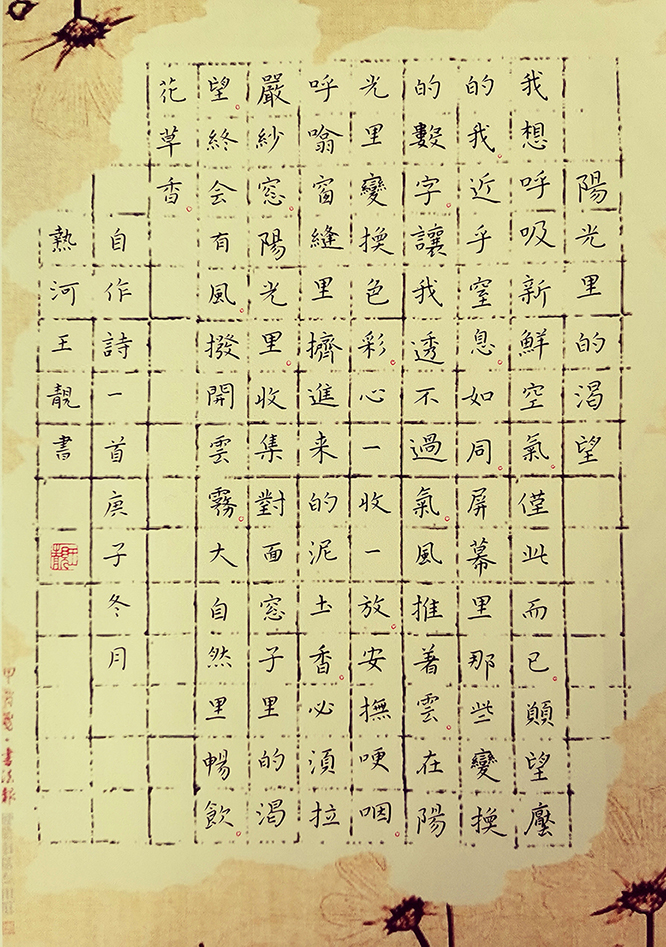 陽光里的渴望
我想呼吸新鮮空氣。僅此而已願望壓
的我。近乎窒息。如同。屏幕里那些變換
的數字。讓我透不過氣。風推著雲。在陽
光里變換色彩。心一收一放。安撫哽咽。
呼噏窗縫里擠進来的泥土香。必須拉
嚴紗窓。陽光里。收集對面窓子里的渴
望。終会有風。撥開雲霧。大自然里暢飲。
花草香。
自作詩一首庚子冬月
熱河王靚書